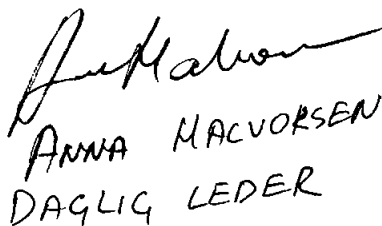 ANNA HALVORSEN
DAGLIG LEDER